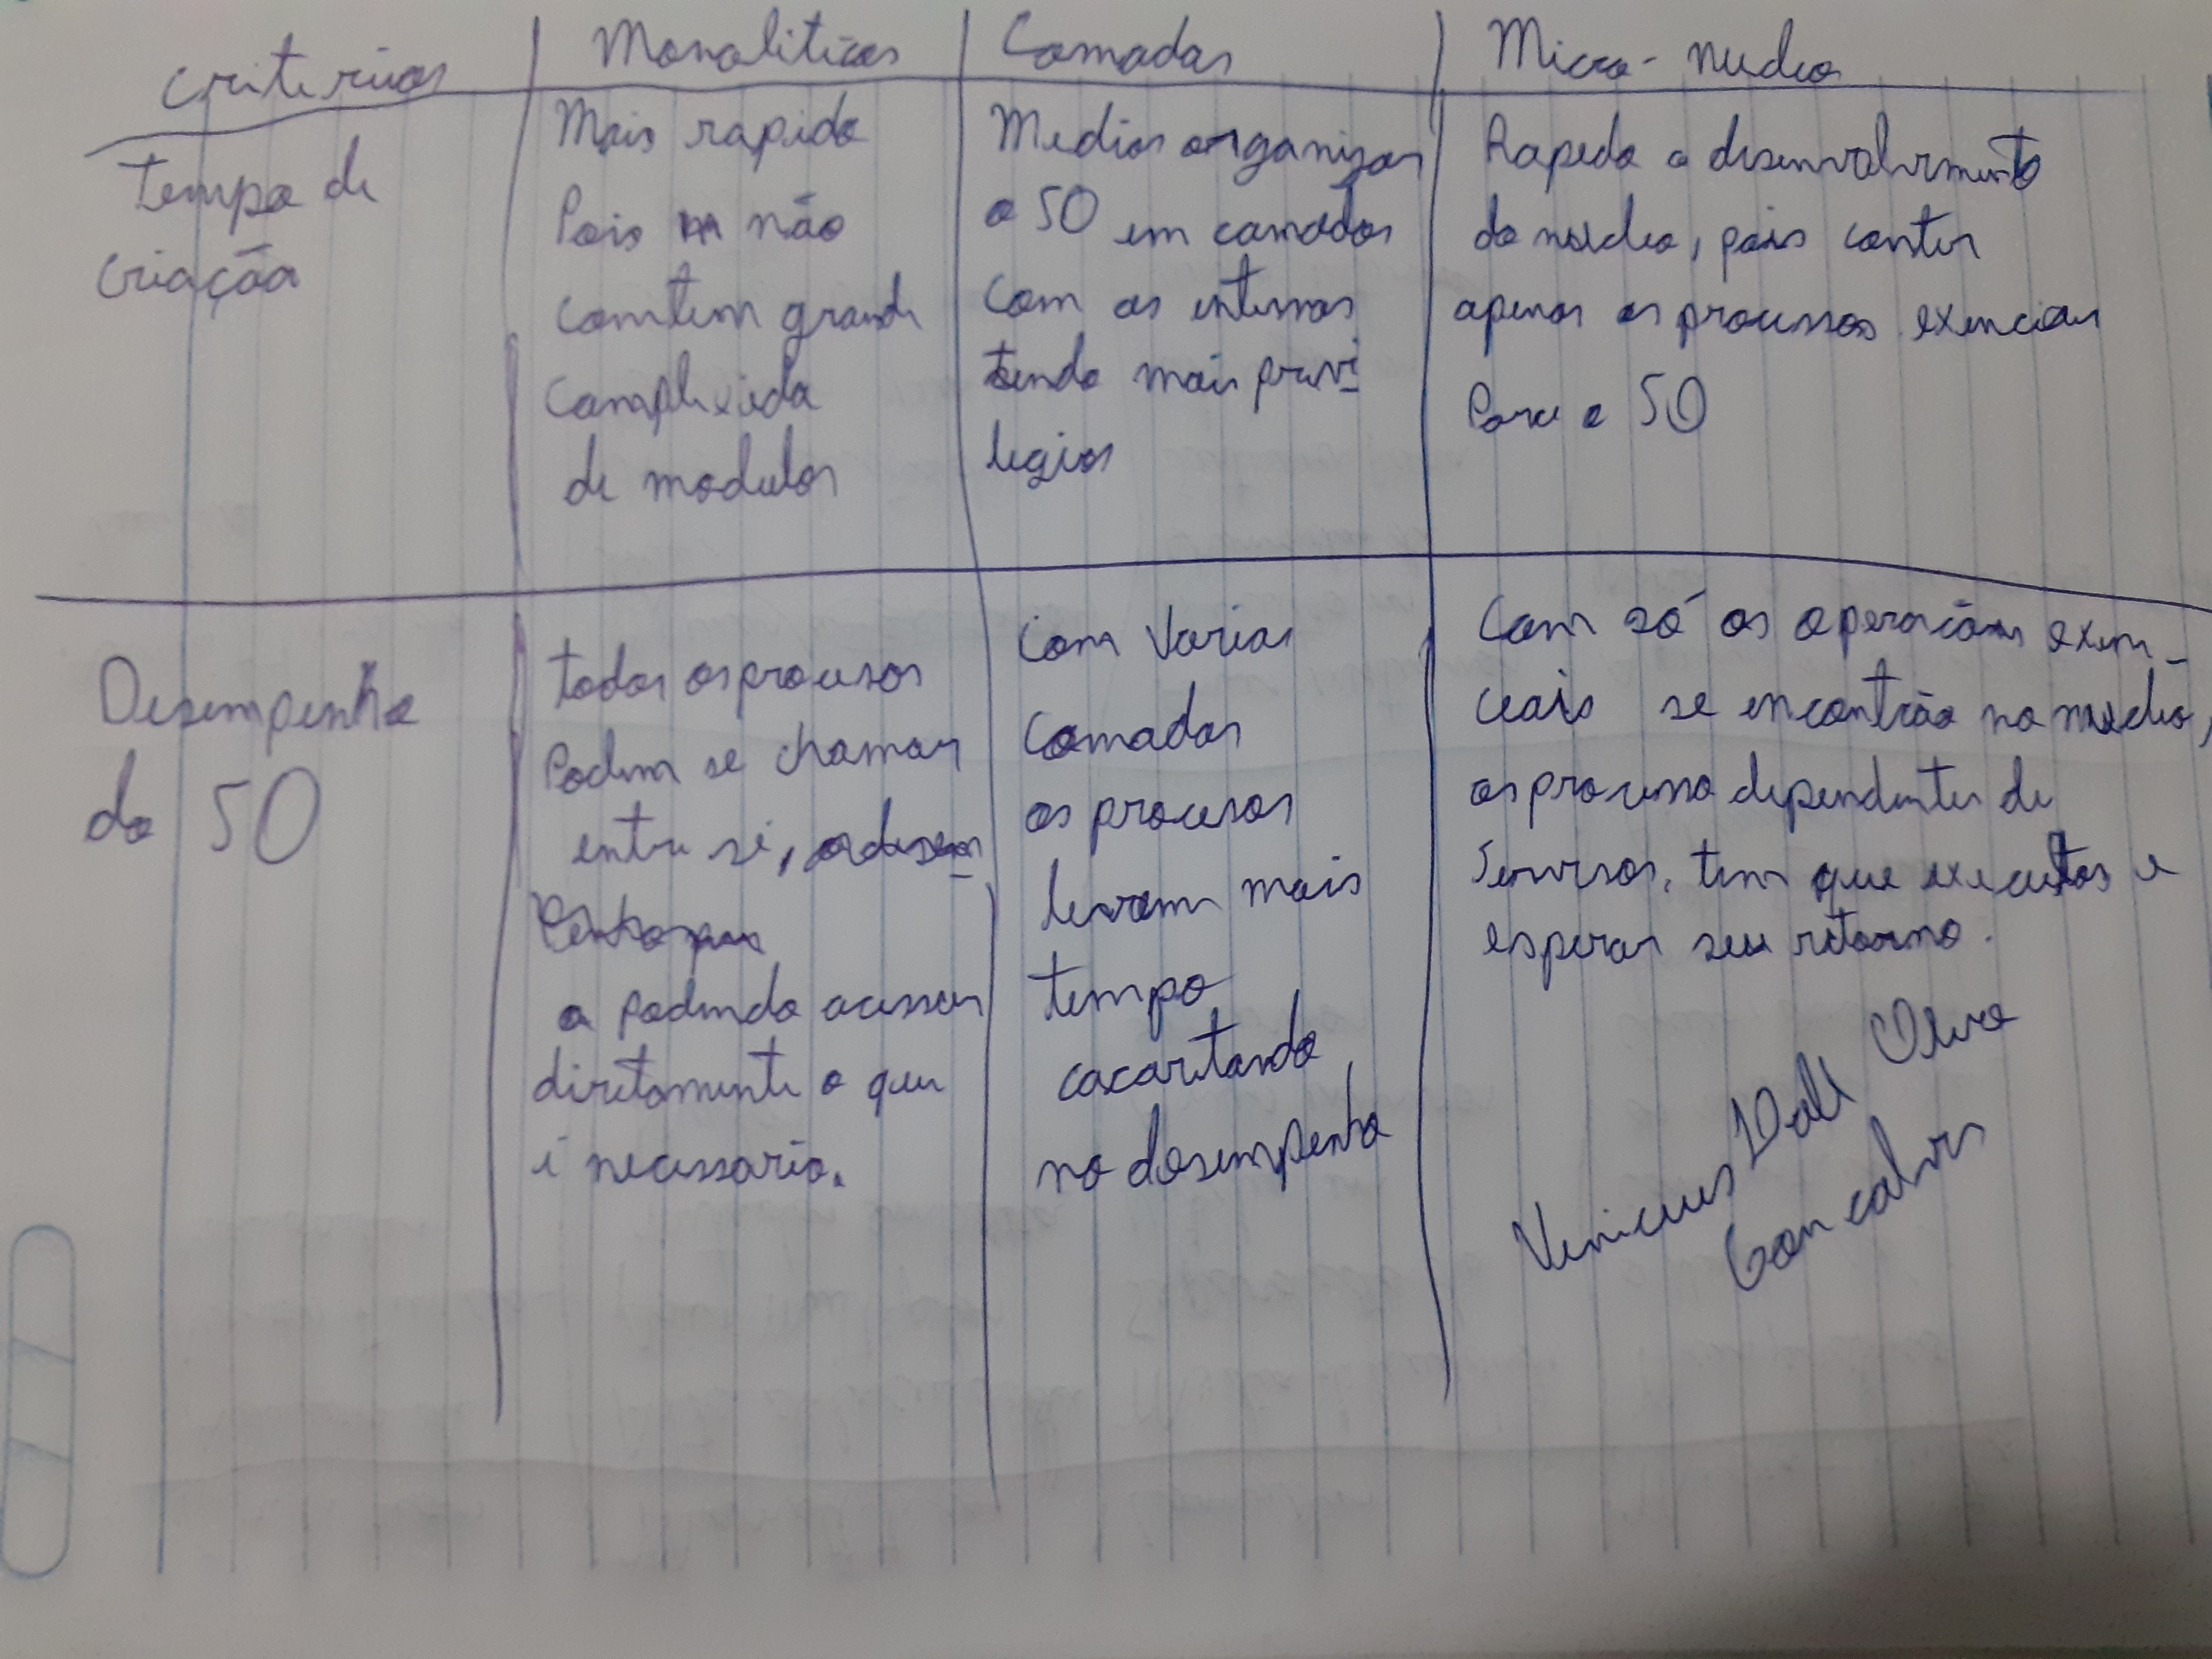 criterios
Monoliticos
Camadas
Micro-nucleo
Tempo de
criação
Mais rapido
Pois não
comtem grande
Complexida
de modulos
Medios organizar
o SO em camadas
Com as internas
tendo mais privi
legios
Rapido o desenvolvimento
do nucleo, pois conter
apenas os processos exenciais
Para o SO
Desempenho
do SO
todos os procesos
Podem se chamar
entre si,
a podendo acessar
diretamente o que
é necessario.
Com varias
Camadas
os procesos
levam mais
tempo
cacaretando
no desempenho
Com só as operações exen-
ciais se encontrão no nucleo,
os processo dependentes de
Servisos, tem que executas e
esperar seu retorno.
Vinicius Dall Oliva
Goncalves